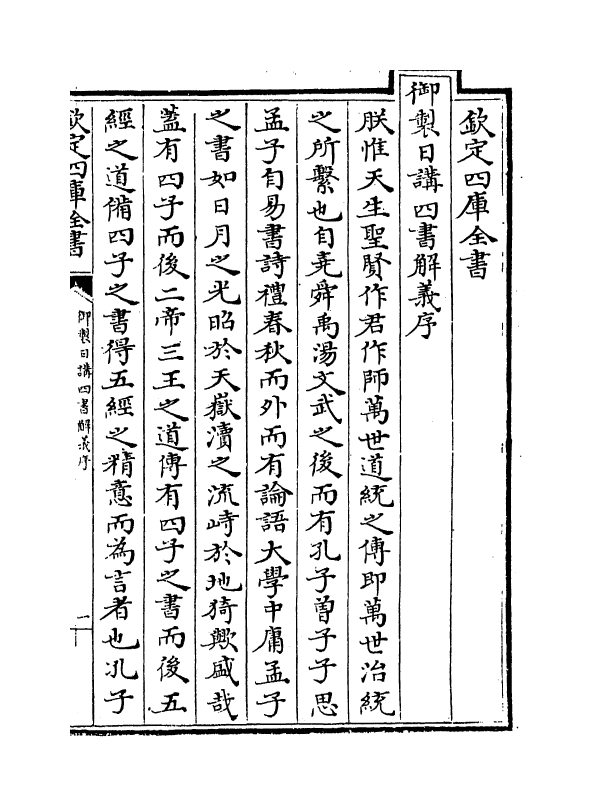 欽定四庫全書
御製日講四書解義序
朕惟天生聖賢作君作師萬世道統之傳即萬世治統
之所繫也自堯舜禹湯文武之後而有孔子曾子子思
孟子自易書詩禮春秋而外而有論語大學中庸孟子
之書如日月之光昭於天嶽瀆之流峙於地猗歟盛哉
蓋有四子而後二帝三王之道傳有四子之書而後五
經之道備四子之書得五經之精意而為言者也孔子
欽定四庫全書
御製日講四書解義序
一